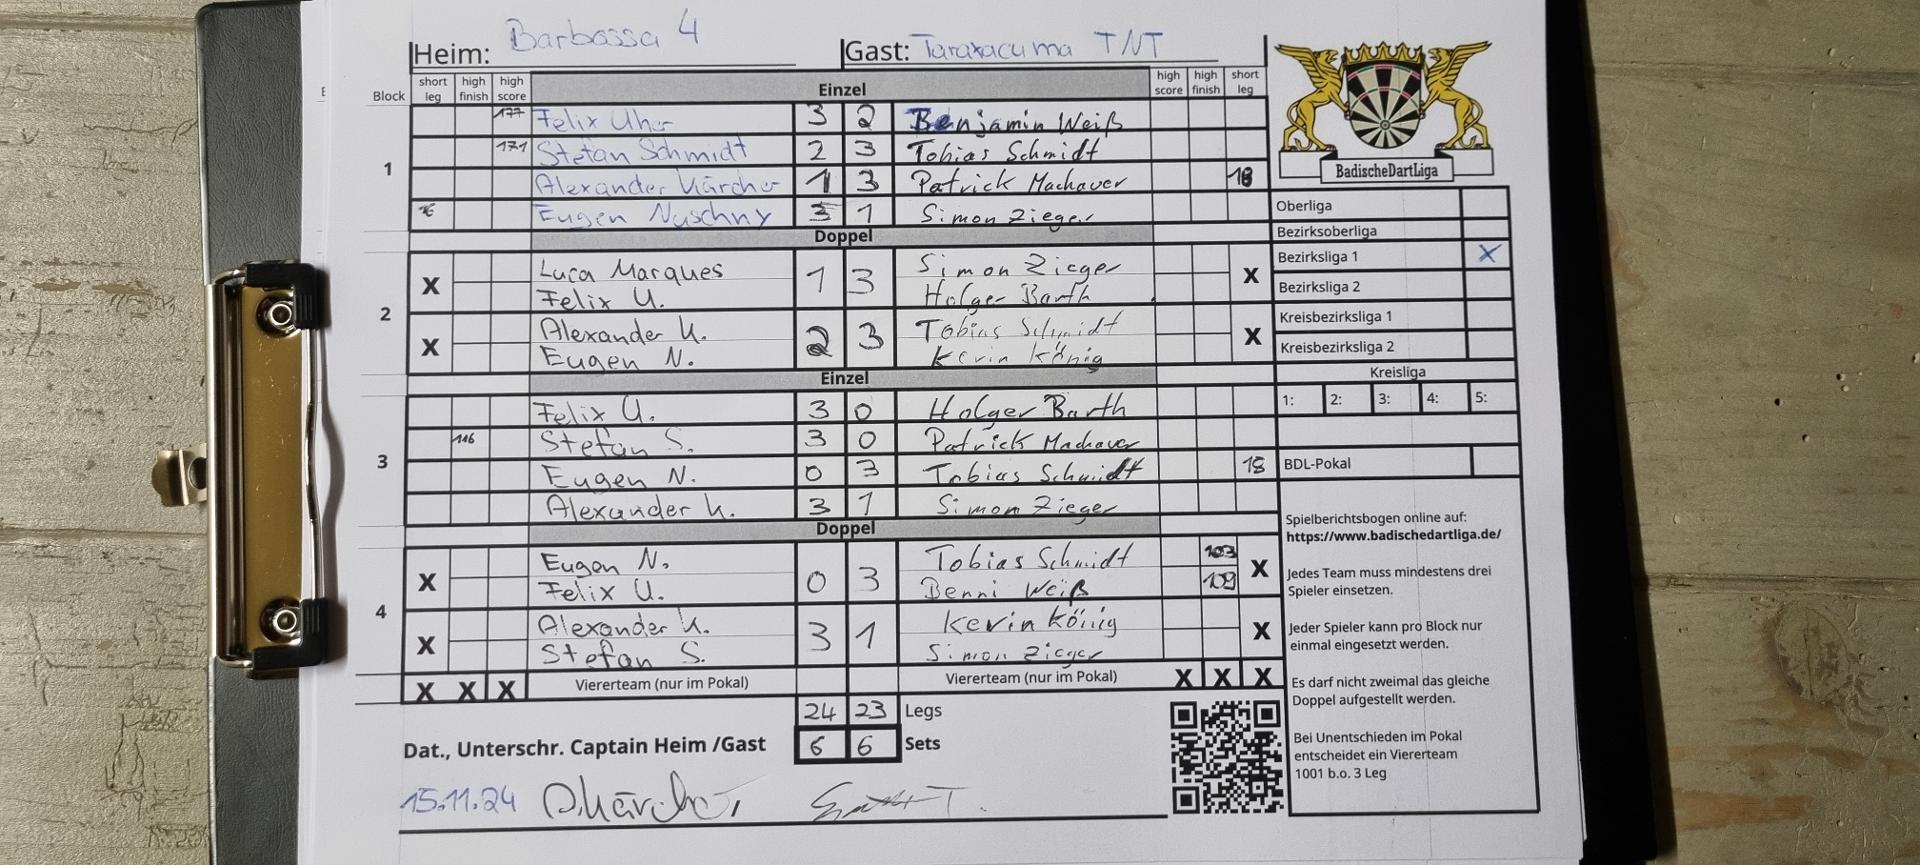 Heim: Barbossa 4 Gast: Taraxacuma TNT
Block short leg high finish high score Einzel high score high finish short leg
177 Felix Uher 3 2 Benjamin Weiß
1 171 Stefan Schmidt 2 3 Tobias Schmidt
Alexander Kärcher 1 3 Patrick Machauer 18
Eugen Nuschny 3 1 Simon Zieger
Doppel
2 X Luca Marques 1 3 Simon Zieger X
Felix U. Holger Barth
X Alexander K. 2 3 Tobias Schmidt X
Eugen N. Kevin König
Einzel
3 Felix U. 3 0 Holger Barth
116 Stefan S. 3 0 Patrick Machauer
Eugen N. 0 3 Tobias Schmidt 18
Alexander K. 3 1 Simon Zieger
Doppel
4 X Eugen N. 0 3 Tobias Schmidt 103 X
Felix U. Benni Weiß 109
X Alexander K. 3 1 Kevin König X
Stefan S. Simon Zieger
X X X Viererteam (nur im Pokal) Viererteam (nur im Pokal) X X X
24 23 Legs
Dat., Unterschr. Captain Heim /Gast 6 6 Sets
15.11.24
BadischeDartLiga
Oberliga
Bezirksoberliga
Bezirksliga 1 X
Bezirksliga 2
Kreisbezirksliga 1
Kreisbezirksliga 2
Kreisliga
1: 2: 3: 4: 5:
BDL-Pokal
Spielberichtsbogen online auf:
https://www.badischedartliga.de/
Jedes Team muss mindestens drei
Spieler einsetzen.
Jeder Spieler kann pro Block nur
einmal eingesetzt werden.
Es darf nicht zweimal das gleiche
Doppel aufgestellt werden.
Bei Unentschieden im Pokal
entscheidet ein Viererteam
1001 b.o. 3 Leg